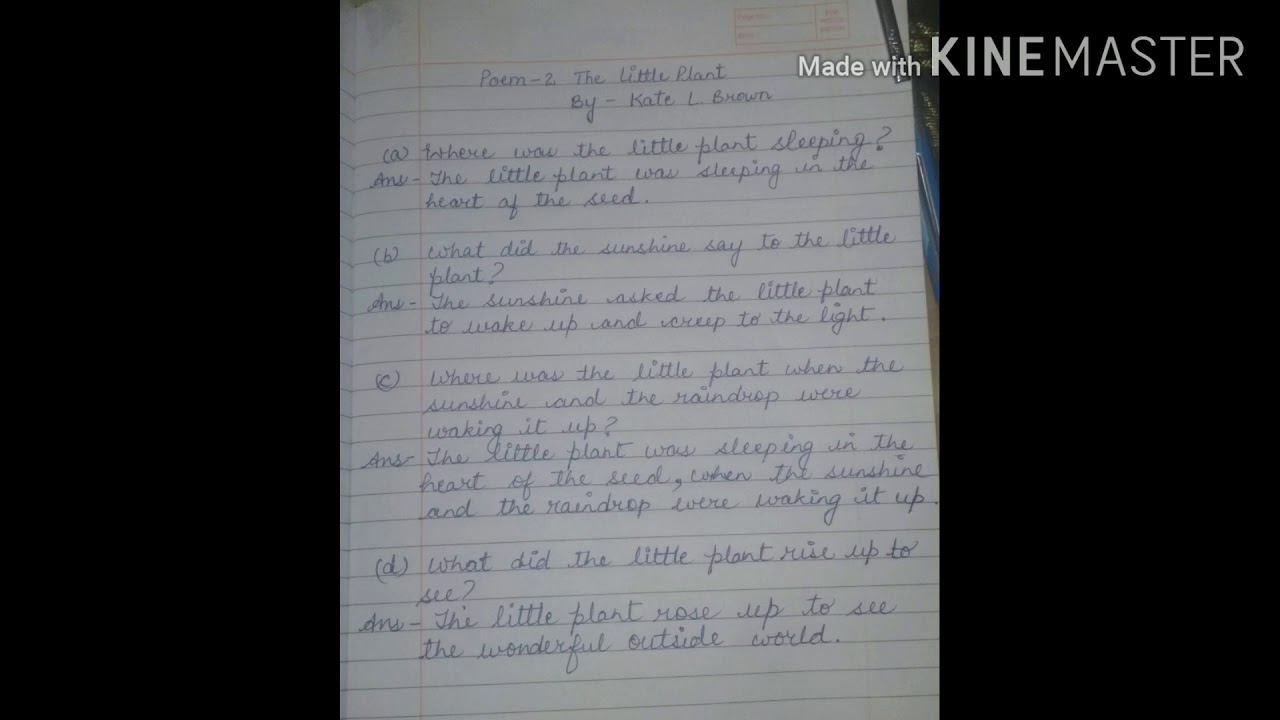 Made with KINEMASTER
Poem-2 The Little Plant
By - Kate L. Brown
(a) Where was the little plant sleeping?
Ans - The little plant was sleeping in the
heart of the seed.
(b) What did the sunshine say to the little
plant?
Ans - The sunshine asked the little plant
to wake up and creep to the light.
(c) Where was the little plant when the
sunshine and the raindrop were
waking it up?
Ans - The little plant was sleeping in the
heart of the seed, when the sunshine
and the raindrop were waking it up.
(d) What did the little plant rise up to
see?
Ans - The little plant rose up to see
the wonderful outside world.